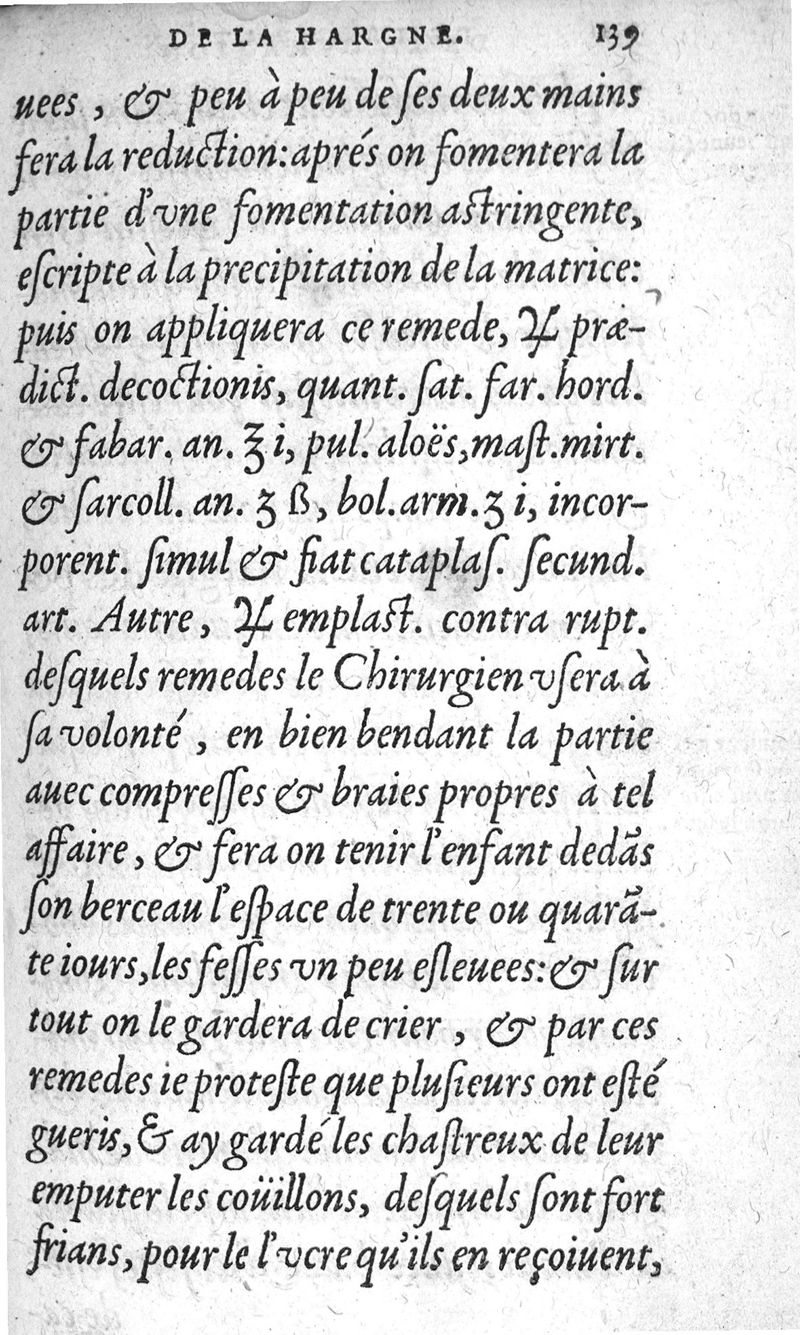 DE LA HARGNE. 139
uees, & peu à peu de ſes deux mains
fera la reduction: aprés on fomentera la
partie d'vne fomentation aſtringente,
eſcripte à la precipitation de la matrice:
puis on appliquera ce remede, ♃ præ-
dict. decoctionis, quant. ſat. far. hord.
& fabar. an. ℥ i, pul. aloës, maſt. mirt.
& ſarcoll. an. ʒ ß, bol. arm. ʒ i, incor-
porent. ſimul & fiat cataplaſ. ſecund.
art. Autre, ♃ emplaſt. contra rupt.
deſquels remedes le Chirurgien vſera à
ſa volonté, en bien bendant la partie
auec compreſſes & braies propres à tel
affaire, & fera on tenir l'enfant dedãs
ſon berceau l'eſpace de trente ou quarã-
te iours, les feſſes vn peu eſleuees: & ſur
tout on le gardera de crier, & par ces
remedes ie proteſte que pluſieurs ont eſté
gueris, & ay gardé les chaſtreux de leur
emputer les coüillons, deſquels ſont fort
frians, pour le l'vcre qu'ils en reçoiuent,